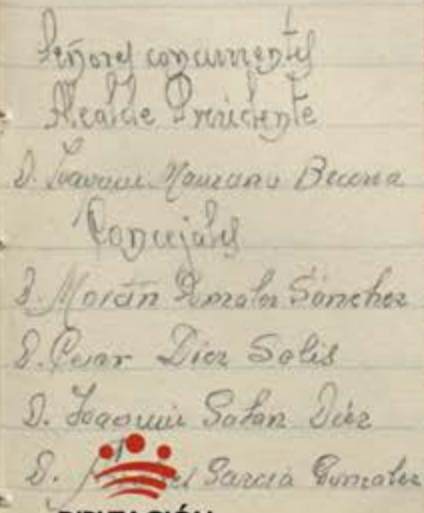 Señores concurrentes
Alcalde Presidente
D. Manzano Becerra
Concejales
D. Martin Gonzalez Sánchez
D. Cesar Diez Solis
D. Joaquin Galan Diez
D. Garcia Gonzalez
DIPUTACIÓN